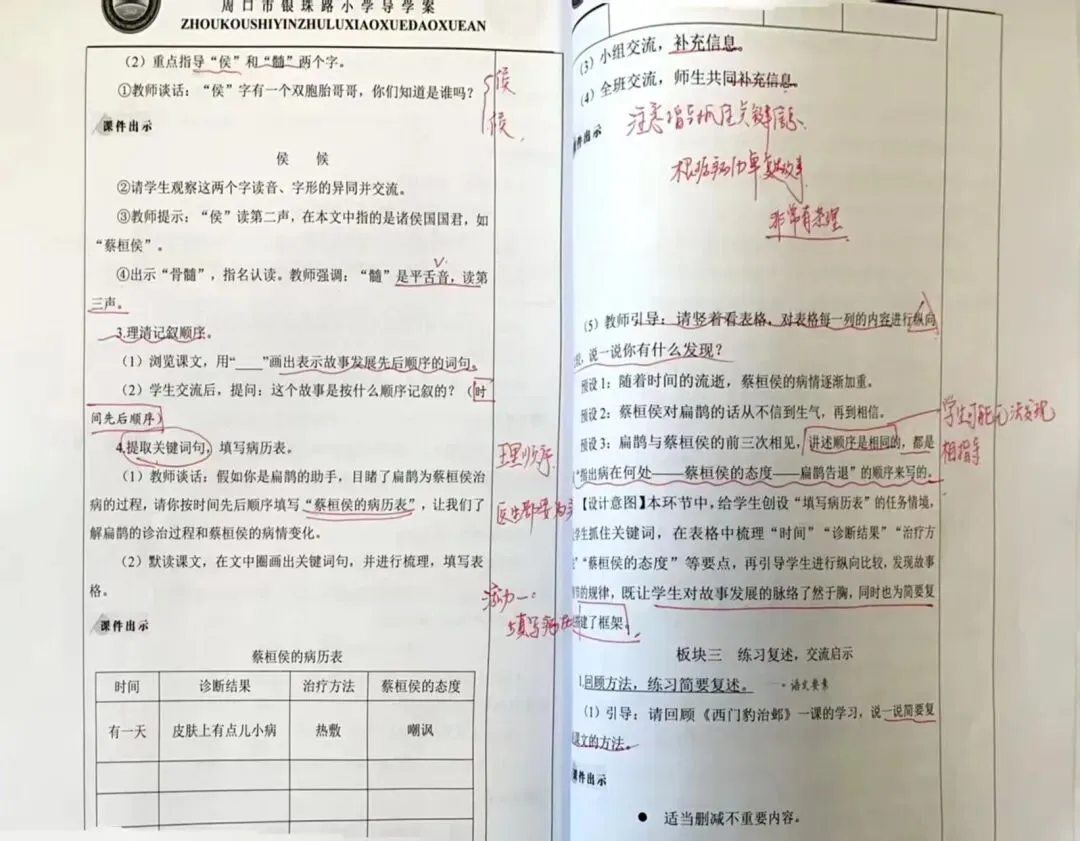 周口市银珠路小学导学案
ZHOUKOUSHIYINZHULUXIAOXUEDAOXUEAN
（2）重点指导“侯”和“髓”两个字。
①教师谈话：“侯”字有一个双胞胎哥哥，你们知道是谁吗？
侯
候
课件出示
侯 候
②请学生观察这两个字读音、字形的异同并交流。
③教师提示：“侯”读第二声，在本文中指的是诸侯国国君，如
“蔡桓侯”。
④出示“骨髓”，指名认读。教师强调：“髓”是平舌音，读第
三声。
3.理清记叙顺序。
（1）浏览课文，用“____”画出表示故事发展先后顺序的词句。
（2）学生交流后，提问：这个故事是按什么顺序记叙的？（时
间先后顺序）
4.提取关键词句，填写病历表。
理顺序
（1）教师谈话：假如你是扁鹊的助手，目睹了扁鹊为蔡桓侯治
病的过程，请你按时间先后顺序填写“蔡桓侯的病历表”，让我们了
解扁鹊的诊治过程和蔡桓侯的病情变化。
（2）默读课文，在文中圈画出关键词句，并进行梳理，填写表
格。
活动一：
填写病历
课件出示
蔡桓侯的病历表
时间 诊断结果 治疗方法 蔡桓侯的态度
有一天 皮肤上有点儿小病 热敷 嘲讽
（3）小组交流，补充信息。
（4）全班交流，师生共同补充信息。
件出示
注意指导抓重点信息
非常有条理
（5）教师引导：请竖着看表格，对表格每一列的内容进行纵向
，说一说你有什么发现？
预设1：随着时间的流逝，蔡桓侯的病情逐渐加重。
预设2：蔡桓侯对扁鹊的话从不信到生气，再到相信。
学生可能无法发现
相指导
预设3：扁鹊与蔡桓侯的前三次相见，讲述顺序是相同的，都是
“指出病在何处——蔡桓侯的态度——扁鹊告退”的顺序来写的。
【设计意图】本环节中，给学生创设“填写病历表”的任务情境，
学生抓住关键词，在表格中梳理“时间”“诊断结果”“治疗方
”“蔡桓侯的态度”等要点，再引导学生进行纵向比较，发现故事
节的规律，既让学生对故事发展的脉络了然于胸，同时也为简要复
建了框架。
板块三 练习复述，交流启示
1.回顾方法，练习简要复述。 语文要素
（1）引导：请回顾《西门豹治邺》一课的学习，说一说简要复
课文的方法。
课件出示
● 适当删减不重要内容。